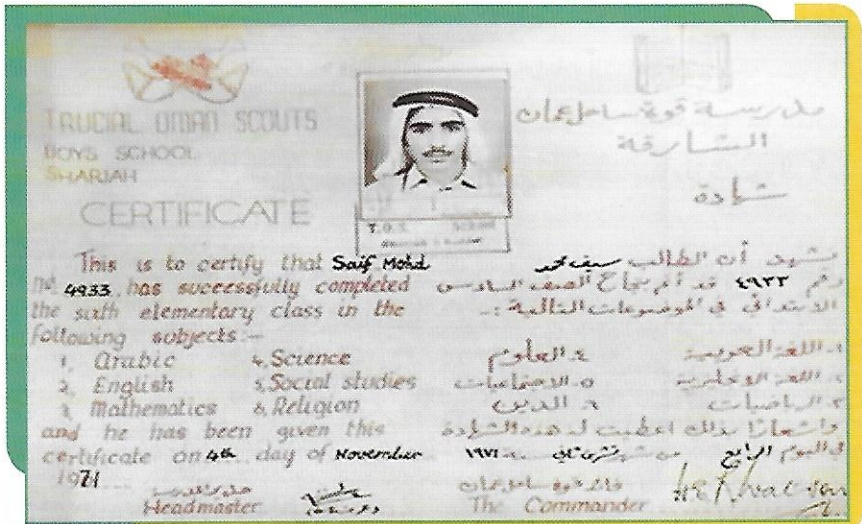 TRUCIAL OMAN SCOUTS
BOYS SCHOOL
SHARJAH
CERTIFICATE
مدرسة قوة ساحل عمان
الشارقة
شهادة
T.O.S.
This is to certify that Saif Mohd
no. 4933 has successfully completed
the sixth elementary class in the
following subjects:-
1, Arabic 4, Science
2, English 5, Social studies
3, Mathematics 6, Religion
and he has been given this
certificate on 4th day of November
1971
Headmaster
نشهد أن الطالب سيف محمد
رقم ٤٩٣٣ قد أتم بنجاح الصف السادس
الابتدائي في الموضوعات التالية :-
١- اللغة العربية ٤- العلوم
٢- اللغة الإنجليزية ٥- الاجتماعيات
٣- الرياضيات ٦- الدين
وإشعارًا بذلك اعطيت له هذه الشهادة
في اليوم الرابع من شهر تشرين ثاني ١٩٧١
قائد قوة ساحل عمان
The Commander